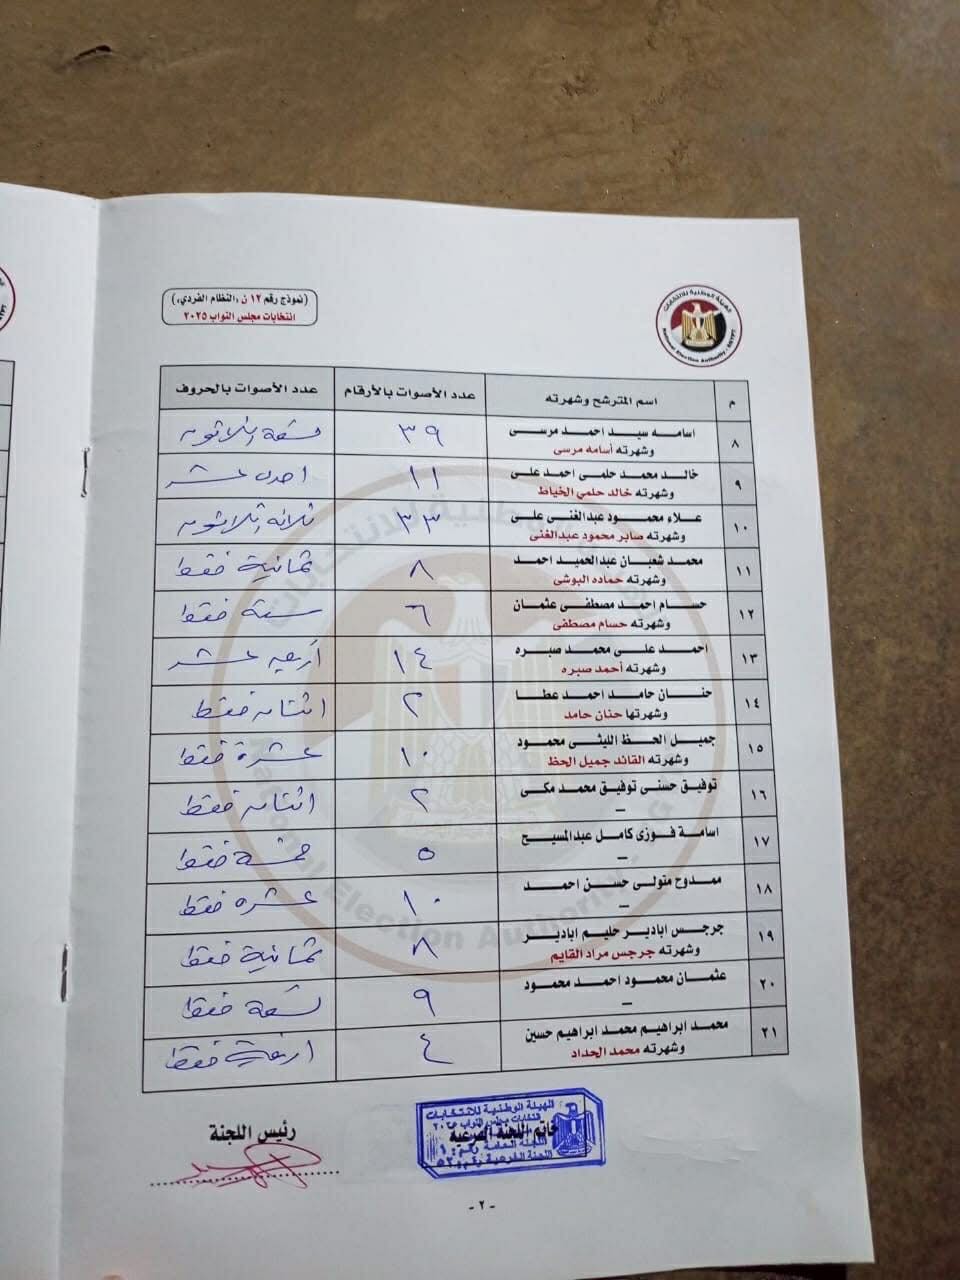 (نموذج رقم ١٢ ن «النظام الفردي»)
انتخابات مجلس النواب ٢٠٢٥
الهيئة الوطنية للانتخابات
National Election Authority - EGYPT
م اسم المترشح وشهرته عدد الأصوات بالأرقام عدد الأصوات بالحروف
٨ اسامه سيد احمد مرسى ٣٩ تسعة وثلاثون
وشهرته أسامه مرسى
٩ خالد محمد حلمى احمد على ١١ احدى عشر
وشهرته خالد حلمي الخياط
١٠ علاء محمود عبدالغنى على ٣٣ ثلاثة وثلاثون
وشهرته صابر محمود عبدالغنى
١١ محمد شعبان عبدالحميد احمد ٨ ثمانية فقط
وشهرته حماده البوشى
١٢ حسام احمد مصطفى عثمان ٦ ستة فقط
وشهرته حسام مصطفى
١٣ احمد على محمد صبره ١٤ أربعة عشر
وشهرته أحمد صبره
١٤ حنان حامد احمد عطا ٢ اثنان فقط
وشهرتها حنان حامد
١٥ جميل الحظ الليثى محمود ١٠ عشرة فقط
وشهرته القائد جميل الحظ
١٦ توفيق حسنى توفيق محمد مكى ٢ اثنان فقط
–
١٧ اسامة فوزى كامل عبدالمسيح ٥ خمسة فقط
–
١٨ ممدوح متولى حسن احمد ١٠ عشره فقط
–
١٩ جرجس ابادير حليم ابادير ٨ ثمانية فقط
وشهرته جرجس مراد القايم
٢٠ عثمان محمود احمد محمود ٩ تسعة فقط
–
٢١ محمد ابراهيم محمد ابراهيم حسين ٤ اربعة فقط
وشهرته محمد الحداد
خاتم اللجنة الفرعية
رئيس اللجنة
الهيئة الوطنية للانتخابات
انتخابات مجلس النواب ٢٠٢٥
اللجنة الفرعية رقم
- ٢ -